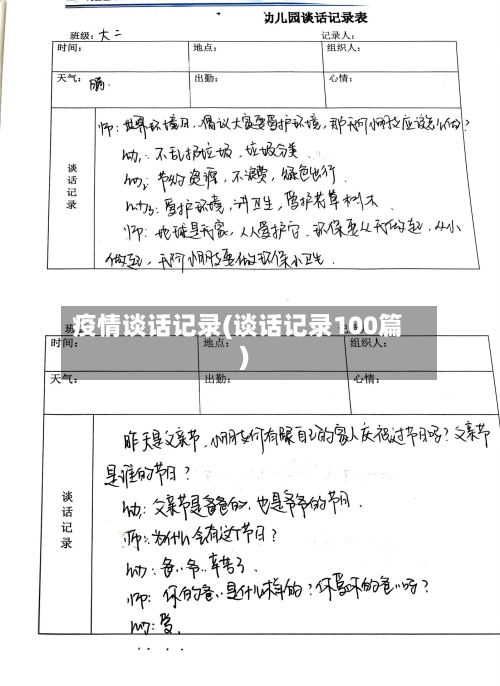 幼儿园谈话记录表
班级：大二 记录人：
时间： 地点： 组织人：
天气：晴 出勤： 心情：
谈话记录
师：世界环境日，倡议大家要爱护环境，那我们小朋友应该怎么做？
幼1：不乱扔垃圾，垃圾分类．
幼2：节约资源，不浪费，绿色出行．
幼3：爱护环境，讲卫生，爱护花草树木．
师：地球是我家，人人爱护它．环保要从我做起，从小
做起，我们小朋友要做环保小卫生．
疫情谈话记录(谈话记录100篇
)
时间： 地点： 组织人：
天气： 出勤： 心情：
谈话记录
昨天是父亲节，小朋友们有跟自己的家人庆祝过节日吗？父亲节
是谁的节日？
幼：父亲节是爸爸的，也是爷爷的节日．
师：为什么会有这个节日？
幼：爸爸爷爷辛苦了．
师：你的爸爸是什么样的？你爱你的爸爸吗？
幼：爱．